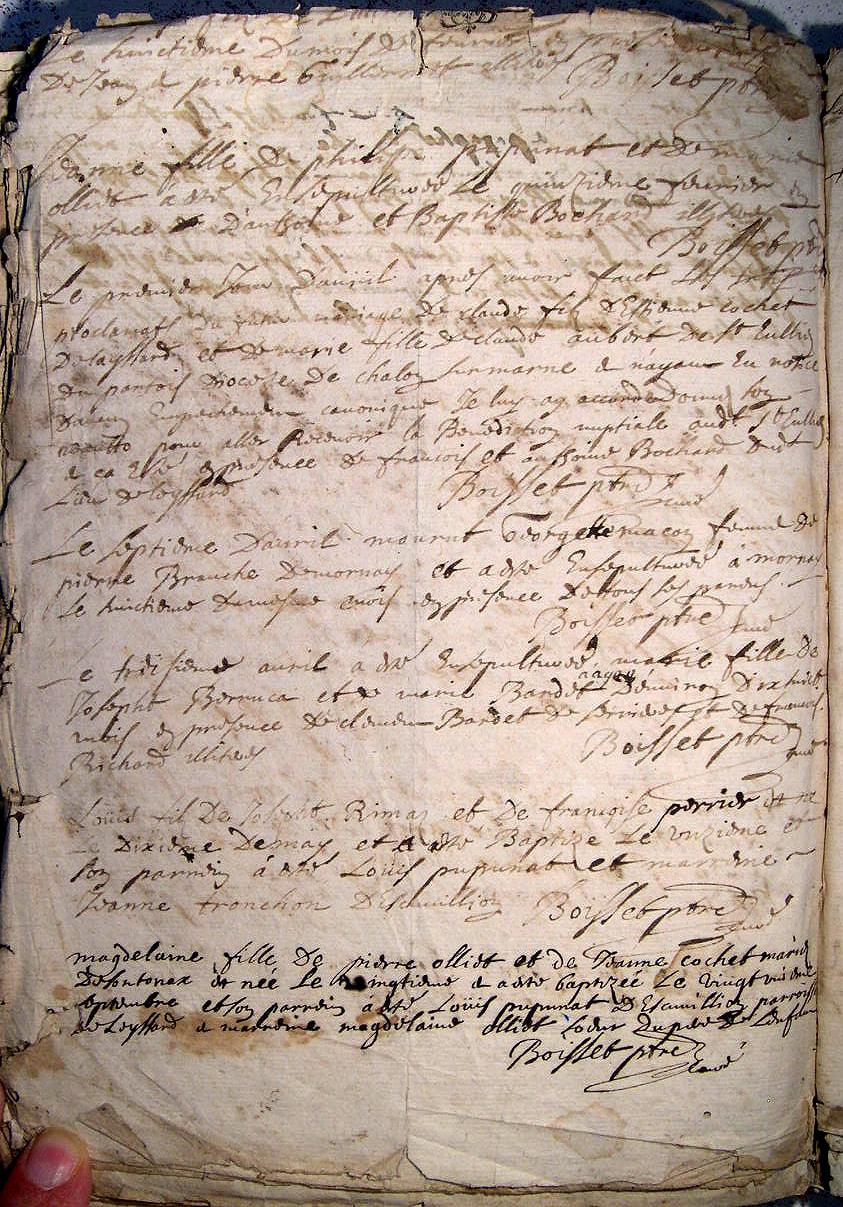 Le huictieme Dumois De feurier en
De Jean & pierre Guillermet illitres Boisset ptre
Jeanne fille De philippe pupunat et De marie
olliet á esté Ensepulturéé Le quinzieme feurier en
presence D'anthoine et Baptiste Bochard illitres
Boisset ptre
Le premier Jour D'auril apres auoir faict Les trois
proclamaôs Du futur mariage De claude fils D'Estienne cochet
De Layssard et De marie fille De claude aubert De St Eullien
Du partois Diocese De chalon sur marne & n'ayant Eu notice
D'aucun Empechement canonique Je luy ay accordé Domi son
remitto pour aller Recevoir la Benediction nuptiale aud. St Eullien
& ca Esté en presence De francois et anthoine Bochard Dud.
Lieu De Leyssard Boisset ptre curé
Le septieme D'auril mourut Georgette macon femme De
pierre Brauche De mornay et a esté Ensepulturéé à mornay
Le huictieme Du mesme mois en presence De tous ses parens.
Boisset ptre curé
Le treisieme auril a esté Ensepulturéé marie fille De
Joseph Berruca et De marie Bardet aagee D'enuiron Dix huict
mois en presence De clement Bardet De et De francois
Richard illitres Boisset ptre curé
Louis fil De Joseph Rimas et De francoise perrier est né
Le Dixieme De may et a esté Baptizé Le unzieme et
son parrein á esté Louis pupunat et marreine
Jeanne tronchon D'Escuuillion Boisset ptre curé
magdelaine fille De pierre olliet et de Jeanne cochet mariés
De sontonax est néé Le vingtieme & a esté baptizéé Le vingt
septembre et son parrein á esté Louis pupunat D'Escuuillion parroisse
De Leyssard & marreine magdelaine olliet soeur Du pere De Lenfant
Boisset ptre curé